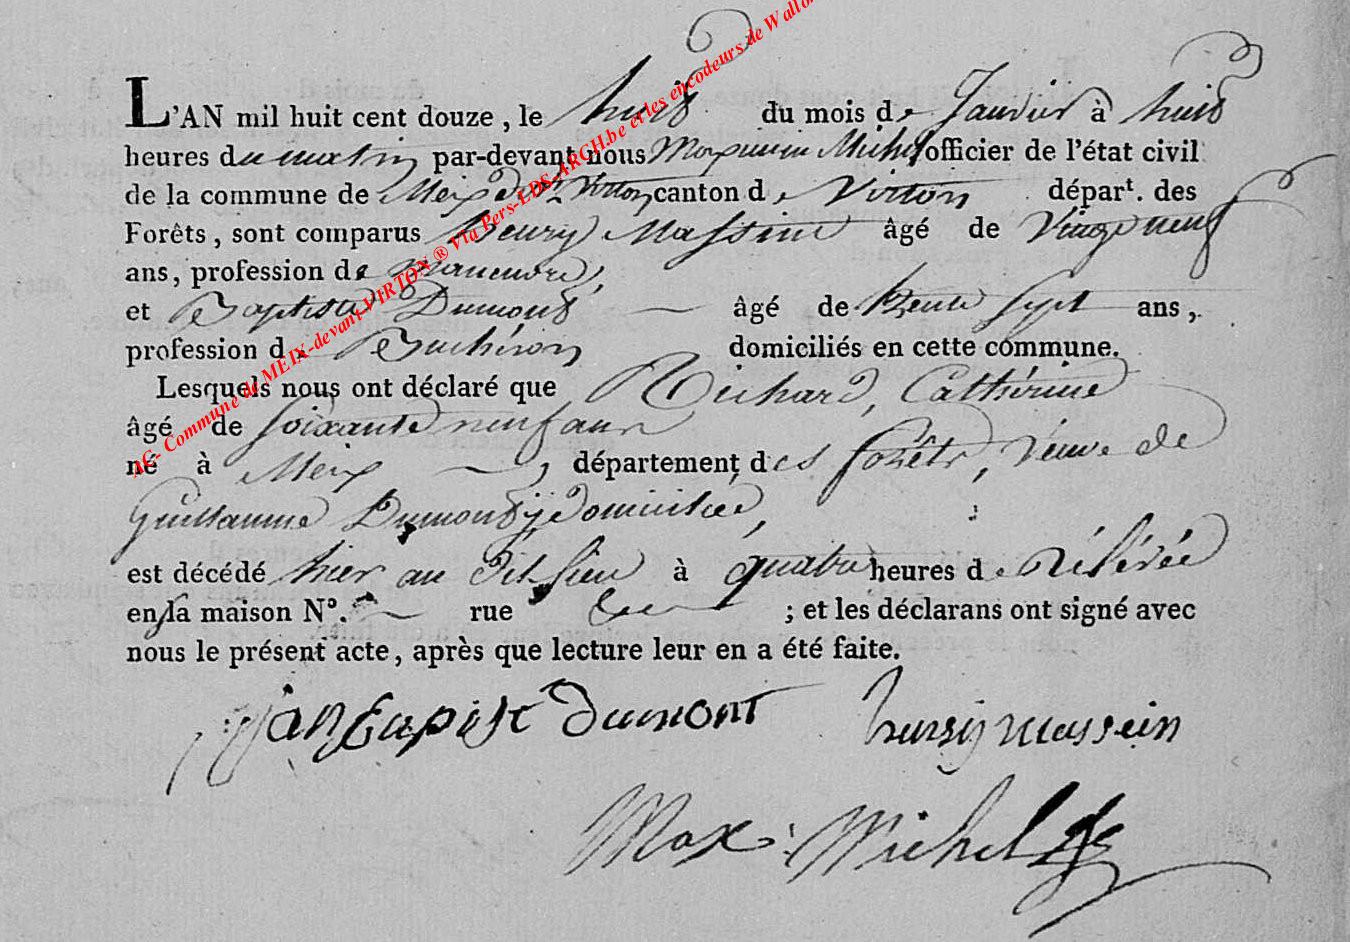 L'AN mil huit cent douze, le huit du mois de Janvier à huit
heures du matin par-devant nous Maximin Michel officier de l'état civil
de la commune de Meix dvt Virton canton de Virton départ. des
Forêts, sont comparus henry Massine âgé de Vingt neuf
ans, profession de manœuvre,
et Baptiste Dumont âgé de trente sept ans,
profession de Bucheron domiciliés en cette commune.
Lesquels nous ont déclaré que Richard, Cathérine
âgé de soixante neuf ans
né à Meix, département des forêts, veuve de
Guillaume Dumont y domiciliée,
est décédé hier au dit lieu à quatre heures de rélévée
en sa maison N°. rue ; et les déclarans ont signé avec
nous le présent acte, après que lecture leur en a été faite.
jan bapist dumont hursy massein
Max. Michel
AG- Commune de MEIX-devant-VIRTON ® Via Pers-EDS-ARCH.be et les encodeurs de Wallon